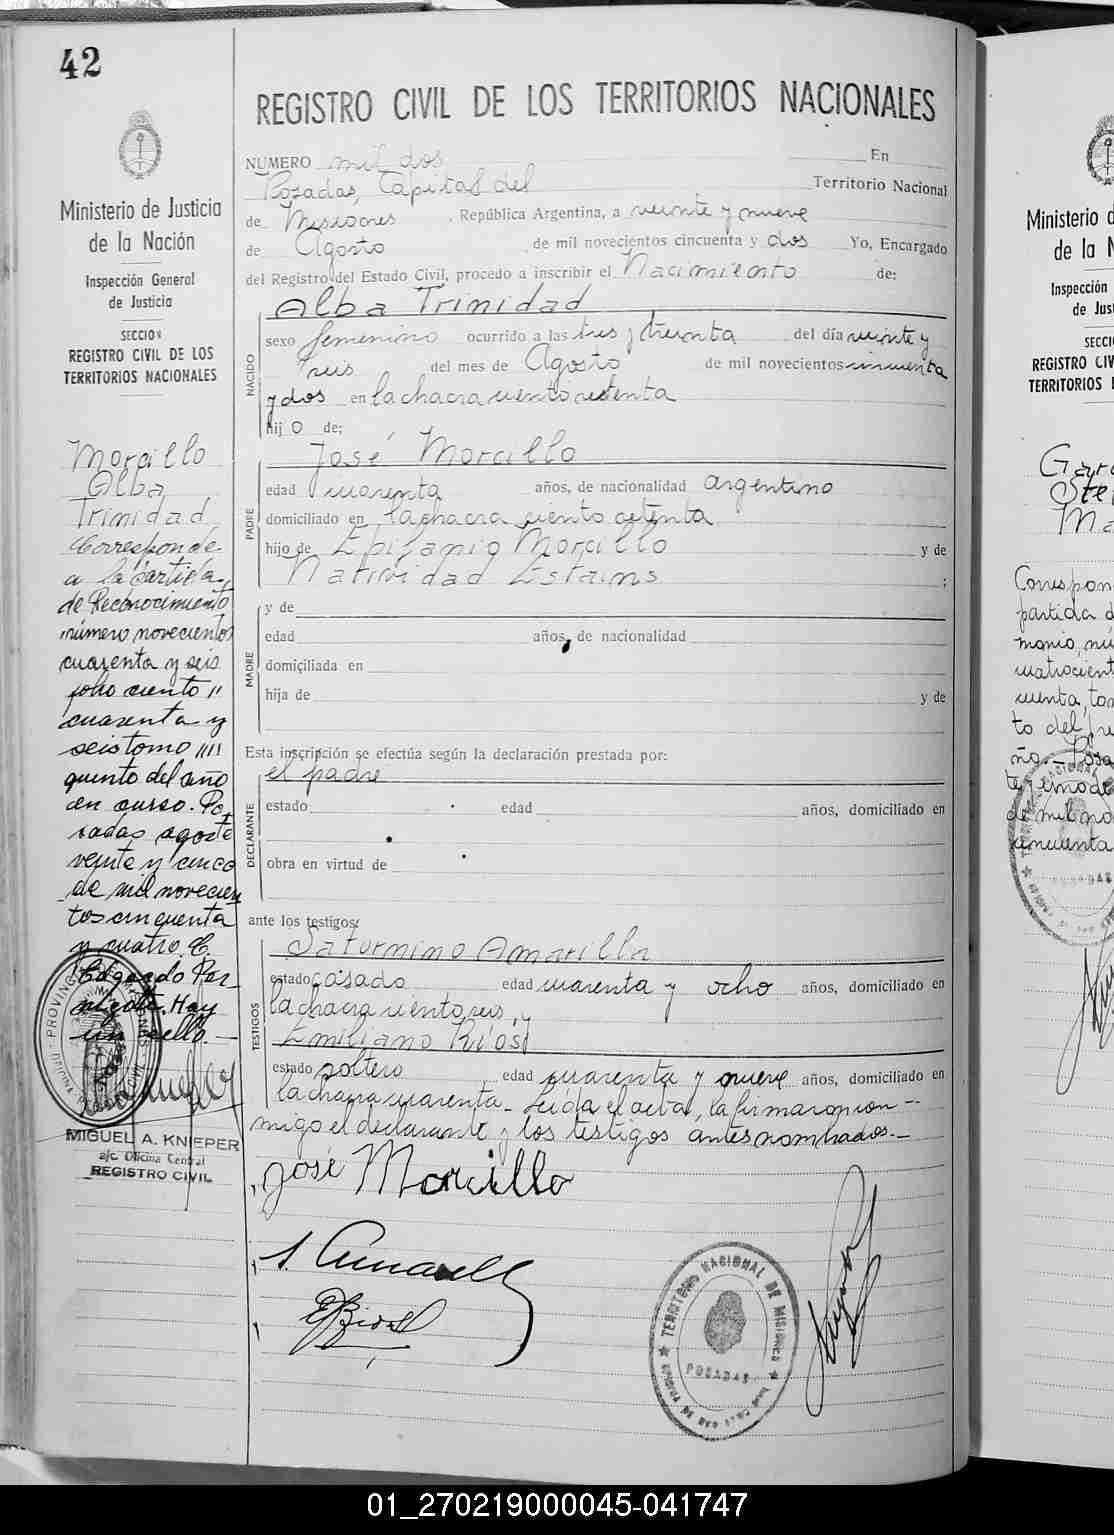 42
Ministerio de Justicia
de la Nación
Inspección General
de Justicia
SECCION
REGISTRO CIVIL DE LOS
TERRITORIOS NACIONALES
Morcillo
Alba
Trinidad
Corresponde
a la partida
de Reconocimiento
número novecientos
cuarenta y seis
folio ciento "
cuarenta y
seis tomo """
quinto del año
en curso. Po-
sadas, agosto
veinte y cinco
de mil novecien
tos cincuenta
y cuatro. E.
Edgardo
Hay
un sello.
MIGUEL A. KNIEPER
a/c. Oficina Central
REGISTRO CIVIL
REGISTRO CIVIL DE LOS TERRITORIOS NACIONALES
NUMERO mil dos En
Posadas, Capital del Territorio Nacional
de Misiones, República Argentina, a veinte y nueve
de Agosto de mil novecientos cincuenta y dos Yo, Encargado
del Registro del Estado Civil, procedo a inscribir el Nacimiento de:
NACIDO
Alba Trinidad
sexo femenino ocurrido a las tres y treinta del día veinte y
seis del mes de Agosto de mil novecientos cincuenta
y dos en la chacra ciento setenta
hij o de:
PADRE
José Morcillo
edad cuarenta años, de nacionalidad argentino
domiciliado en la chacra ciento setenta
hijo de Epifanio Morcillo y de
Natividad Estains ;
MADRE
y de
edad años, de nacionalidad
domiciliada en
hija de y de
Esta inscripción se efectúa según la declaración prestada por:
DECLARANTE
el padre
estado edad años, domiciliado en
obra en virtud de
ante los testigos:
TESTIGOS
Saturnino Amarilla
estado casado edad cuarenta y ocho años, domiciliado en
la chacra ciento seis, y
Emiliano Ríos
estado soltero edad cuarenta y nueve años, domiciliado en
la chacra cuarenta - Leída el acta, la firmaron con-
migo el declarante y los testigos antes nombrados.-
José Morcillo
TERRITORIO NACIONAL DE MISIONES
POSADAS
Ministerio d
de la N
Inspección
de Jus
SECCI
REGISTRO CIV
TERRITORIOS
Correspon
partida d
01_270219000045-041747